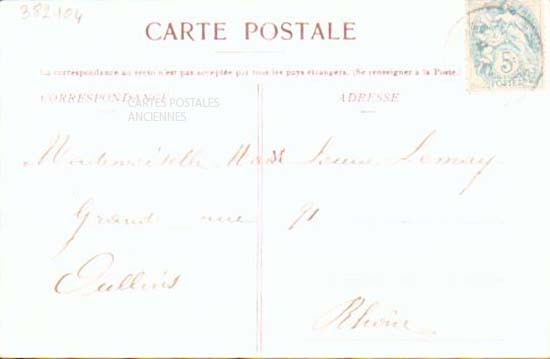 382104
CARTE POSTALE
La correspondance au recto n'est pas acceptée par tous les pays étrangers. (Se renseigner à la Poste.)
CORRESPONDANCE
ADRESSE
CARTES POSTALES
ANCIENNES
5c
POSTES
Mademoiselle Lemay
Grand rue 91
Oullins
Rhône